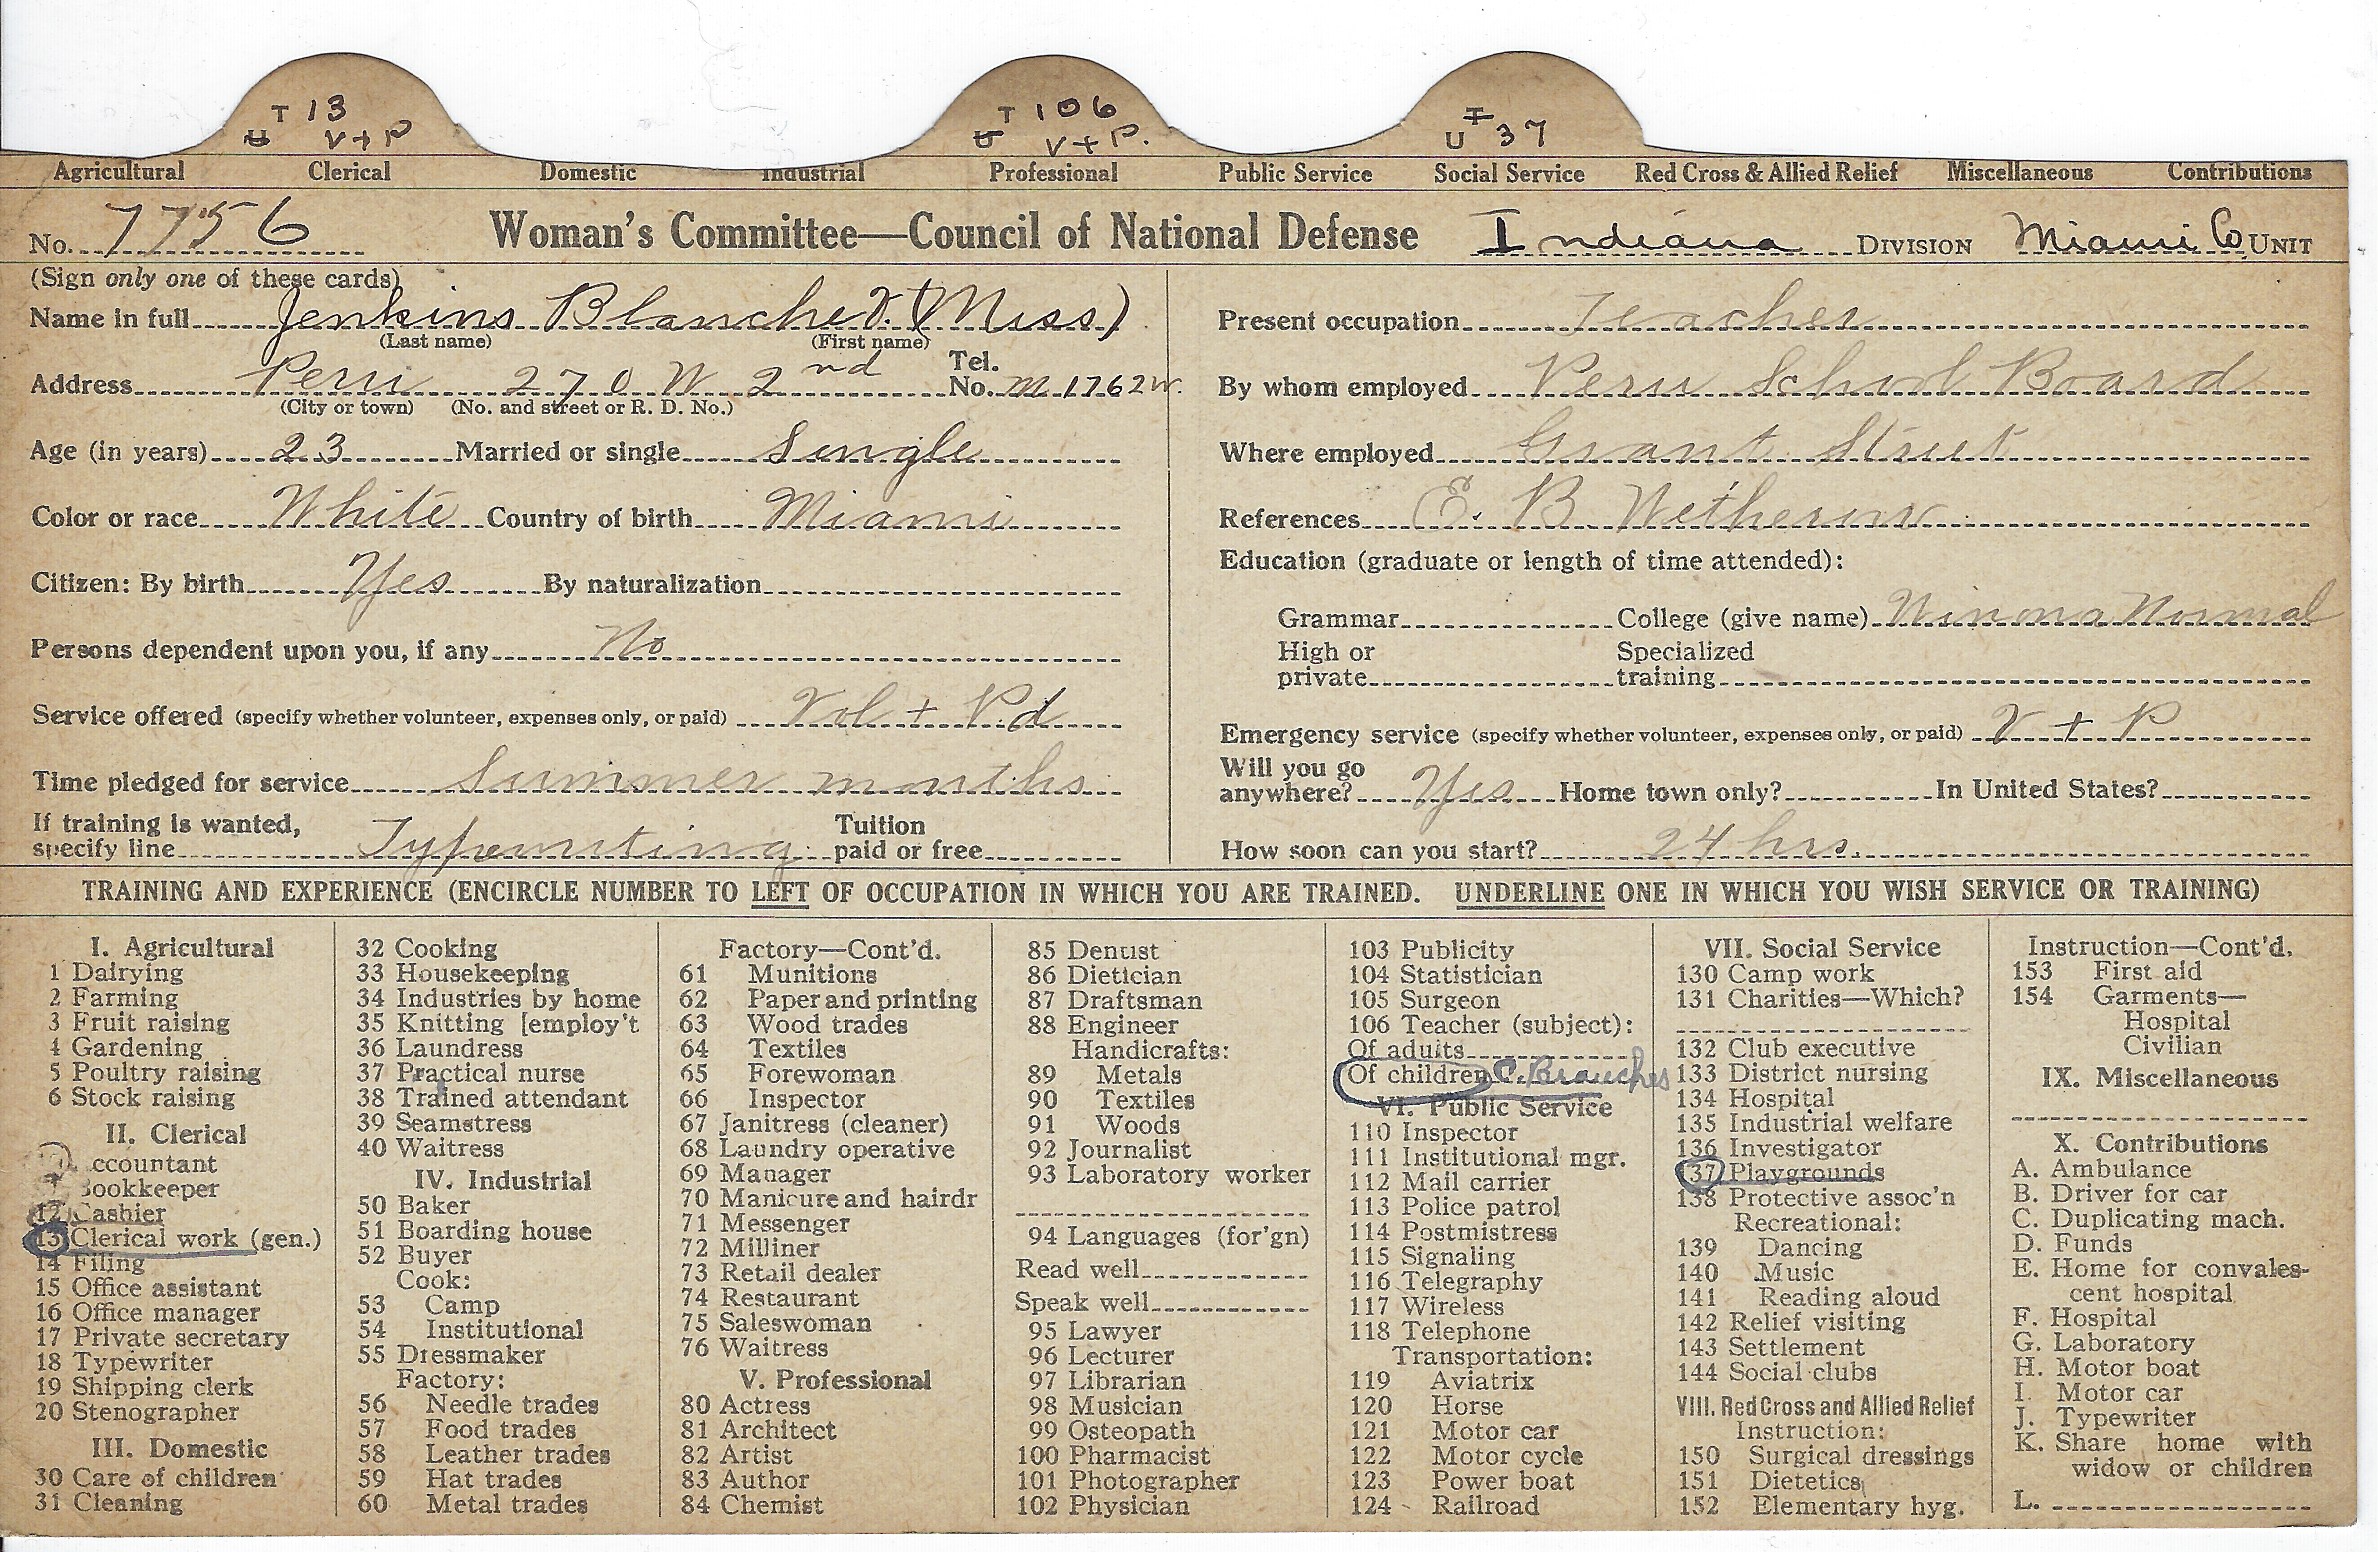 T 13
U V+P
T 106
U V+P.
T
U 37
Agricultural Clerical Domestic Industrial Professional Public Service Social Service Red Cross & Allied Relief Miscellaneous Contributions
No. 7756 Woman's Committee—Council of National Defense Indiana DIVISION Miami Co UNIT
(Sign only one of these cards)
Name in full Jenkins Blanche V. (Miss)
(Last name) (First name)
Address Peru 270 W 2nd Tel. No. M 1762W.
(City or town) (No. and street or R. D. No.)
Age (in years) 23 Married or single Single
Color or race White Country of birth Miami
Citizen: By birth Yes By naturalization
Persons dependent upon you, if any No
Service offered (specify whether volunteer, expenses only, or paid) Vol + Pd
Time pledged for service Summer months
If training is wanted, specify line Typewriting Tuition paid or free
Present occupation Teacher
By whom employed Peru School Board
Where employed Grant Street
References E. B. Wetherow
Education (graduate or length of time attended):
Grammar College (give name) Winona Normal
High or private Specialized training
Emergency service (specify whether volunteer, expenses only, or paid) V + P
Will you go anywhere? Yes Home town only? In United States?
How soon can you start? 24 hrs.
TRAINING AND EXPERIENCE (ENCIRCLE NUMBER TO LEFT OF OCCUPATION IN WHICH YOU ARE TRAINED. UNDERLINE ONE IN WHICH YOU WISH SERVICE OR TRAINING)
I. Agricultural
1 Dairying
2 Farming
3 Fruit raising
4 Gardening
5 Poultry raising
6 Stock raising
II. Clerical
ccountant
Bookkeeper
12 Cashier
13 Clerical work (gen.)
14 Filing
15 Office assistant
16 Office manager
17 Private secretary
18 Typewriter
19 Shipping clerk
20 Stenographer
III. Domestic
30 Care of children
31 Cleaning
32 Cooking
33 Housekeeping
34 Industries by home
35 Knitting [employ't
36 Laundress
37 Practical nurse
38 Trained attendant
39 Seamstress
40 Waitress
IV. Industrial
50 Baker
51 Boarding house
52 Buyer
Cook:
53 Camp
54 Institutional
55 Dressmaker
Factory:
56 Needle trades
57 Food trades
58 Leather trades
59 Hat trades
60 Metal trades
Factory—Cont'd.
61 Munitions
62 Paper and printing
63 Wood trades
64 Textiles
65 Forewoman
66 Inspector
67 Janitress (cleaner)
68 Laundry operative
69 Manager
70 Manicure and hairdr
71 Messenger
72 Milliner
73 Retail dealer
74 Restaurant
75 Saleswoman
76 Waitress
V. Professional
80 Actress
81 Architect
82 Artist
83 Author
84 Chemist
85 Dentist
86 Dietician
87 Draftsman
88 Engineer
Handicrafts:
89 Metals
90 Textiles
91 Woods
92 Journalist
93 Laboratory worker
94 Languages (for'gn)
Read well
Speak well
95 Lawyer
96 Lecturer
97 Librarian
98 Musician
99 Osteopath
100 Pharmacist
101 Photographer
102 Physician
103 Publicity
104 Statistician
105 Surgeon
106 Teacher (subject):
Of adults
Of children C. Branches
VI. Public Service
110 Inspector
111 Institutional mgr.
112 Mail carrier
113 Police patrol
114 Postmistress
115 Signaling
116 Telegraphy
117 Wireless
118 Telephone
Transportation:
119 Aviatrix
120 Horse
121 Motor car
122 Motor cycle
123 Power boat
124 Railroad
VII. Social Service
130 Camp work
131 Charities—Which?
132 Club executive
133 District nursing
134 Hospital
135 Industrial welfare
136 Investigator
137 Playgrounds
138 Protective assoc'n
Recreational:
139 Dancing
140 Music
141 Reading aloud
142 Relief visiting
143 Settlement
144 Social clubs
VIII. Red Cross and Allied Relief
Instruction:
150 Surgical dressings
151 Dietetics
152 Elementary hyg.
Instruction—Cont'd.
153 First aid
154 Garments—
Hospital
Civilian
IX. Miscellaneous
X. Contributions
A. Ambulance
B. Driver for car
C. Duplicating mach.
D. Funds
E. Home for convales-
cent hospital
F. Hospital
G. Laboratory
H. Motor boat
I. Motor car
J. Typewriter
K. Share home with
widow or children
L.